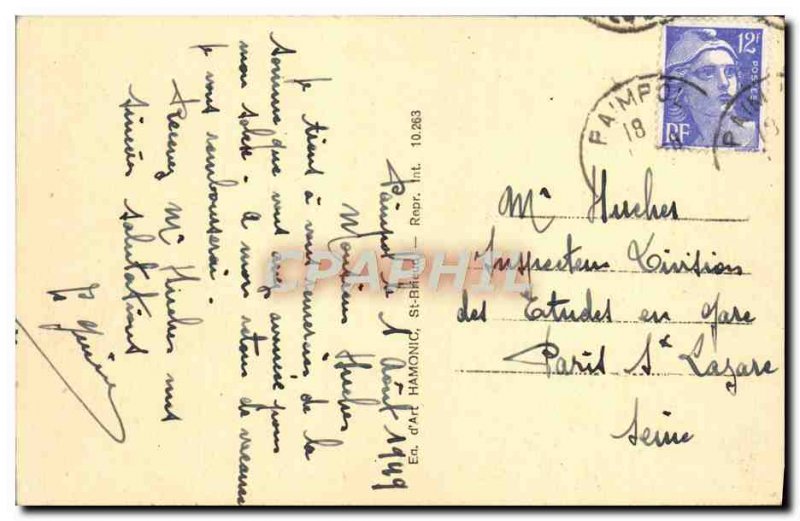 Paimpol le 1 Août 1949
Monsieur Huches
Je tiens à vous remercier de la
somme que vous avez avancé pour
mon solex. A mon retour de vacances
je vous rembourserai.
Recevez Mr Huches mes
sincères salutations
En. d'Art HAMONIC, St-Brieuc — Repr. Int. 10.263
12F
POSTES
RF
PAIMPOL
18
PAIMP
Mr Huches
Inspecteur Division
des Etudes en gare
Paris St Lazare
Seine
CPAPHIL